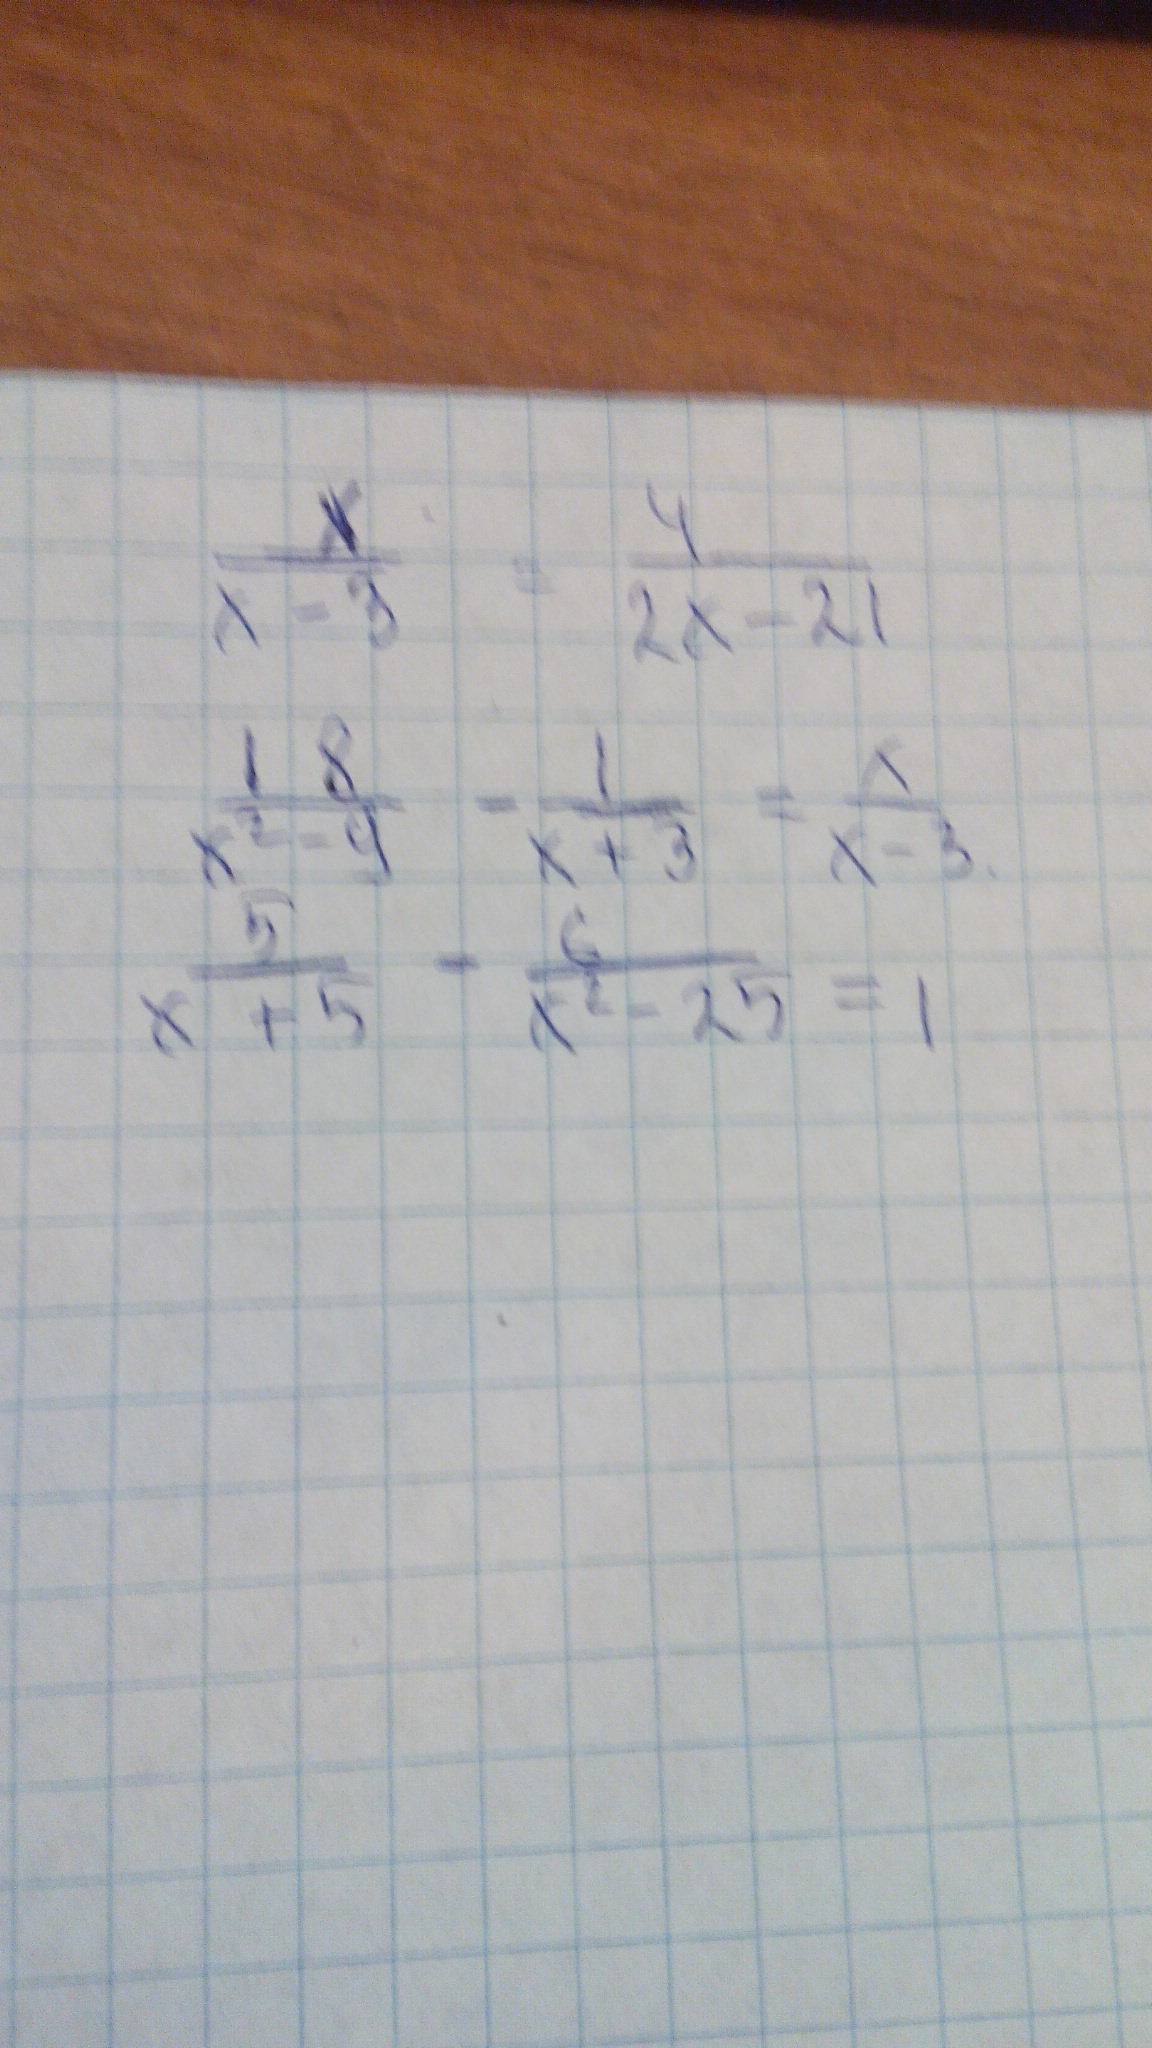 x/(x-3) = 4/(2x-21)
18/(x²-9) - 1/(x+3) = x/(x-3).
5/(x+5) - 6/(x²-25) = 1